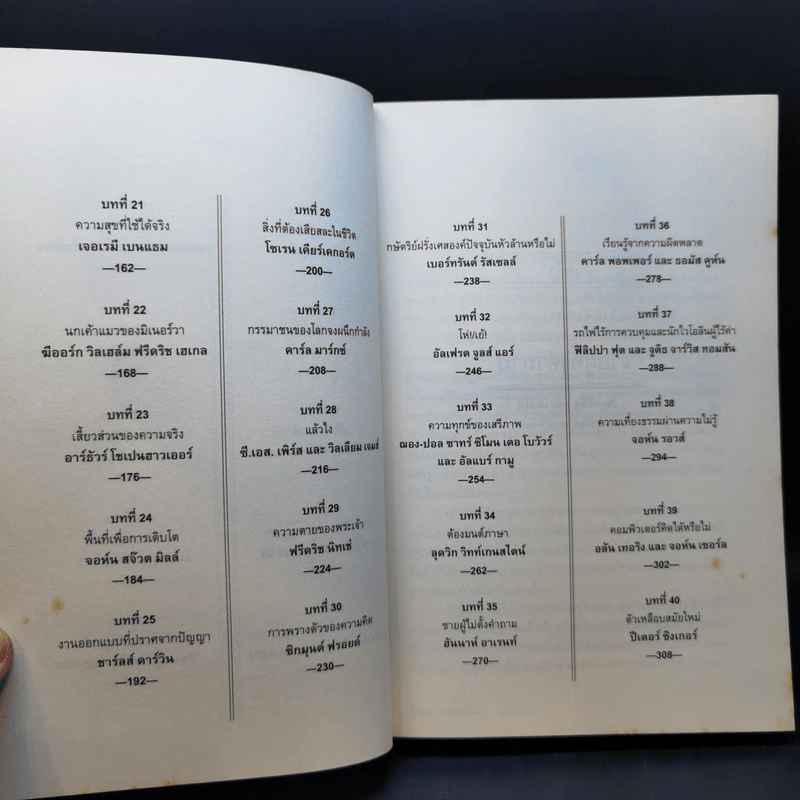 บทที่ 21
ความสุขที่ใช้ได้จริง
เจอเรมี เบนแธม
—162—
บทที่ 22
นกเค้าแมวของมิเนอร์วา
ฆีออร์ก วิลเฮล์ม ฟรีดริช เฮเกล
—168—
บทที่ 23
เสี้ยวส่วนของความจริง
อาร์ธัวร์ โชเปนฮาวเออร์
—176—
บทที่ 24
พื้นที่เพื่อการเติบโต
จอห์น สจ๊วต มิลล์
—184—
บทที่ 25
งานออกแบบที่ปราศจากปัญญา
ชาร์ลส์ ดาร์วิน
—192—
บทที่ 26
สิ่งที่ต้องเสียสละในชีวิต
โซเรน เคียร์เคกอร์ด
—200—
บทที่ 27
กรรมาชนของโลกจงผนึกกำลัง
คาร์ล มาร์กซ์
—208—
บทที่ 28
แล้วไง
ซี.เอส. เพิร์ส และ วิลเลียม เจมส์
—216—
บทที่ 29
ความตายของพระเจ้า
ฟรีดริช นิทเช่
—224—
บทที่ 30
การพรางตัวของความคิด
ซิกมุนด์ ฟรอยด์
—230—
บทที่ 31
กษัตริย์ฝรั่งเศสองค์ปัจจุบันหัวล้านหรือไม่
เบอร์ทรันด์ รัสเซลล์
—238—
บทที่ 32
โห่!/เย้!
อัลเฟรด จูลส์ แอร์
—246—
บทที่ 33
ความทุกข์ของเสรีภาพ
ฌอง-ปอล ซาทร์ ซิโมน เดอ โบวัวร์
และ อัลแบร์ กามู
—254—
บทที่ 34
ต้องมนต์ภาษา
ลุดวิก วิทท์เกนสไตน์
—262—
บทที่ 35
ชายผู้ไม่ตั้งคำถาม
ฮันนาห์ อาเรนท์
—270—
บทที่ 36
เรียนรู้จากความผิดพลาด
คาร์ล พอพเพอร์ และ ธอมัส คูห์น
—278—
บทที่ 37
รถไฟไร้การควบคุมและนักไวโอลินผู้ไร้ค่า
ฟิลิปปา ฟุต และ จูดิธ จาร์วิส ทอมสัน
—288—
บทที่ 38
ความเที่ยงธรรมผ่านความไม่รู้
จอห์น รอวส์
—294—
บทที่ 39
คอมพิวเตอร์คิดได้หรือไม่
อลัน เทอริง และ จอห์น เซอร์ล
—302—
บทที่ 40
ตัวเหลือบสมัยใหม่
ปีเตอร์ ซิงเกอร์
—308—